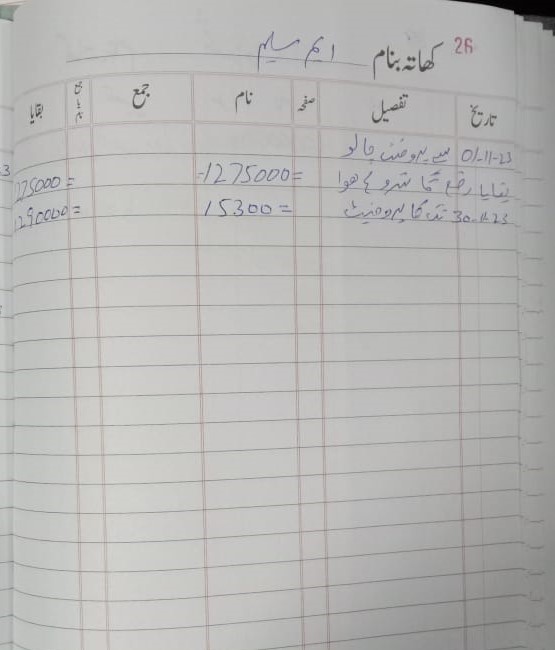 26
کھاتہ بنام ایم سلیم
تاریخ تفصیل صفحہ نام جمع جمع یا نام بقایا
01-11-23 سے پروفٹ چالو
بقایا رقم کا شروع ہوا 1275000= 275000=
30-11-23 تک کا پروفیٹ 15300= 290000=